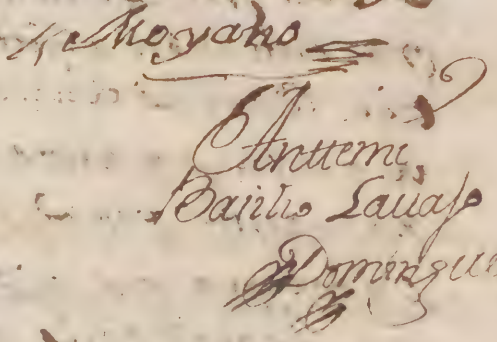 Moyano
Anttemi
Basilio Lauaſo
Domingue